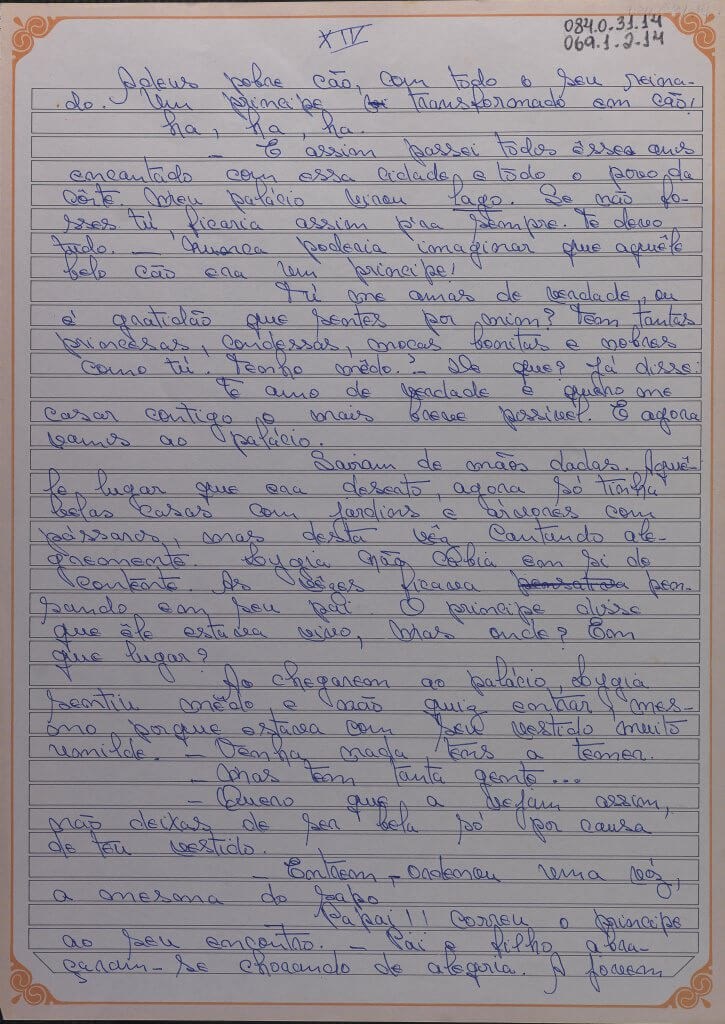 XIV
084.0.31.14
069.1.2.14
Adeus pobre cão, com todo o seu reina-
do. Um principe transformado em cão!
ha, ha, ha.
- E assim passei todos êsses anos
encantado com essa cidade e todo o povo da
côrte. Meu palácio virou lago. Se não fo-
sses tú, ficaria assim p'ra sempre. Te devo
tudo. - Nunca poderia imaginar que aquêle
belo cão era um principe!
Tú me amas de verdade, ou
é gratidão que sentes por mim? Tem tantas
princesas, condessas, moças bonitas e nobres
como tú. Tenho mêdo. - De que? Já disse:
Te amo de verdade e quero me
casar contigo o mais breve possivel. E agora
vamos ao palácio.
Sairam de mãos dadas. Aquê-
le lugar que era deserto, agora só tinha
belas casas com jardins e árvores com
pássaros, mas desta vêz cantando ale-
gremente. Lygia não cabia em si de
contente. As vêzes ficava pensativa pen-
sando em seu pai. O principe disse
que êle estava vivo, mas onde? Em
que lugar?
Ao chegarem ao palácio, Lygia
sentiu mêdo e não quiz entrar, mes-
mo porque estava com seu vestido muito
humilde. - Venha, nada tens a temer.
- Mas tem tanta gente...
- Quero que a vejam assim,
não deixas de ser bela só por causa
de teu vestido.
- Entrem, - ordenou uma vóz,
a mesma do sapo
- Papai!! correu o principe
ao seu encontro. - Pai e filho abra-
çaram-se chorando de alegria. A jovem